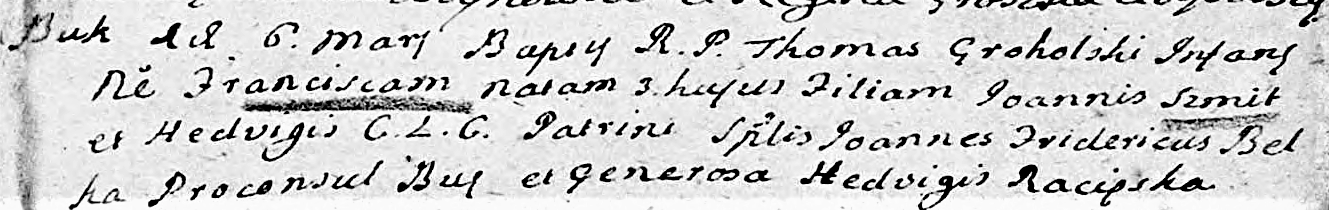 Buk dd 6. Marj Bapty R. P. Thomas Groholski Infans
Nē Franciscam natam 3 hujus Filiam Joannis Szmit
et Hedvigis C. L. C. Patrini Sptlis Joannes Fridericus Bel
ka Proconsul Buj et Generosa Hedvigis Racipska